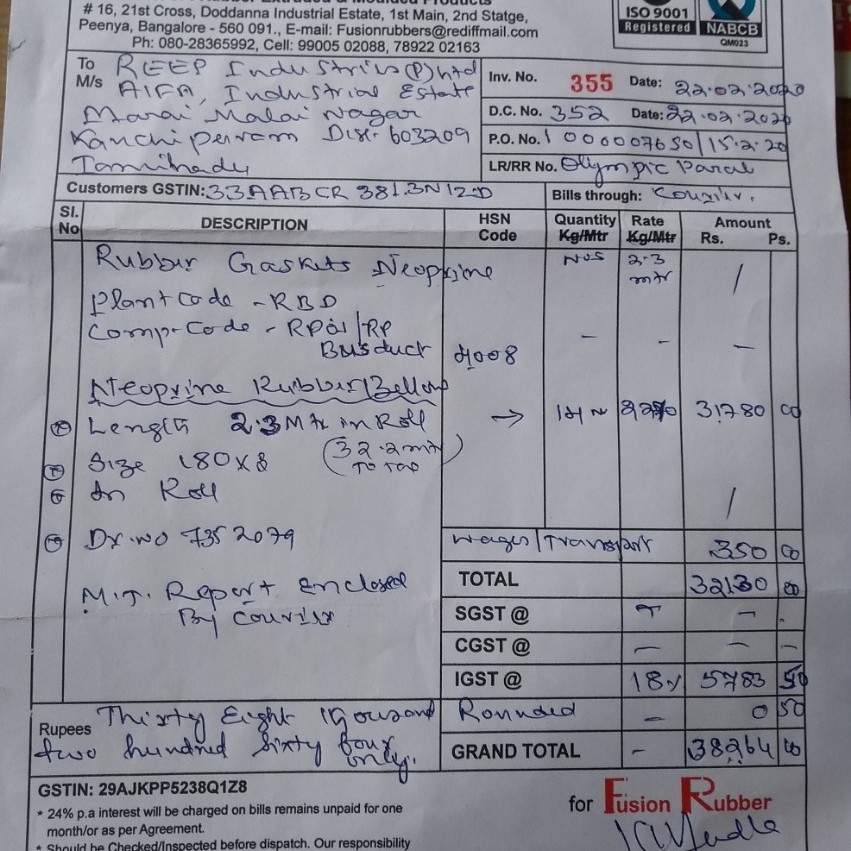 # 16, 21st Cross, Doddanna Industrial Estate, 1st Main, 2nd Statge,
Peenya, Bangalore - 560 091., E-mail: Fusionrubbers@rediffmail.com
Ph: 080-28365992, Cell: 99005 02088, 78922 02163
ISO 9001
Registered
NABCB
QM023
To
M/s
REEP Industries (P) Ltd
AIFA, Industrial Estate
Marai Malai Nagar
Kanchipuram Dist. 603209
Tamilnadu
Inv. No. 355 Date: 22.02.2020
D.C. No. 352 Date: 22.02.2020
P.O. No. 1000007650/15.2.20
LR/RR No. Olympic Parcel
Customers GSTIN: 33AABCR3813N1ZD
Bills through: Courier.
Sl. No
DESCRIPTION
HSN Code
Quantity Kg/Mtr
Rate Kg/Mtr
Amount
Rs. Ps.
Rubber Gaskets Neoprine Nos 2.3 mtr
Plant Code - RBD
Comp-Code - RP01/RP
Busduct 4008
Neoprine Rubber/Bellow
Length 2.3 Mtr in Roll 14 N 2270 31780 00
Size 180X8 (32.2 mtr
TO TAD
In Roll
Dr. No 7352079
M.T. Report Enclosed
By Courier
Wages/Transport 350 00
TOTAL 32130 00
SGST @
CGST @
IGST @ 18% 5783 50
Rounded 0 50
GRAND TOTAL 38264 00
Rupees Thirty Eight Thousand
two hundred Sixty four
only.
GSTIN: 29AJKPP5238Q1Z8
* 24% p.a interest will be charged on bills remains unpaid for one
month/or as per Agreement.
* Should be Checked/Inspected before dispatch. Our responsibility
for Fusion Rubber